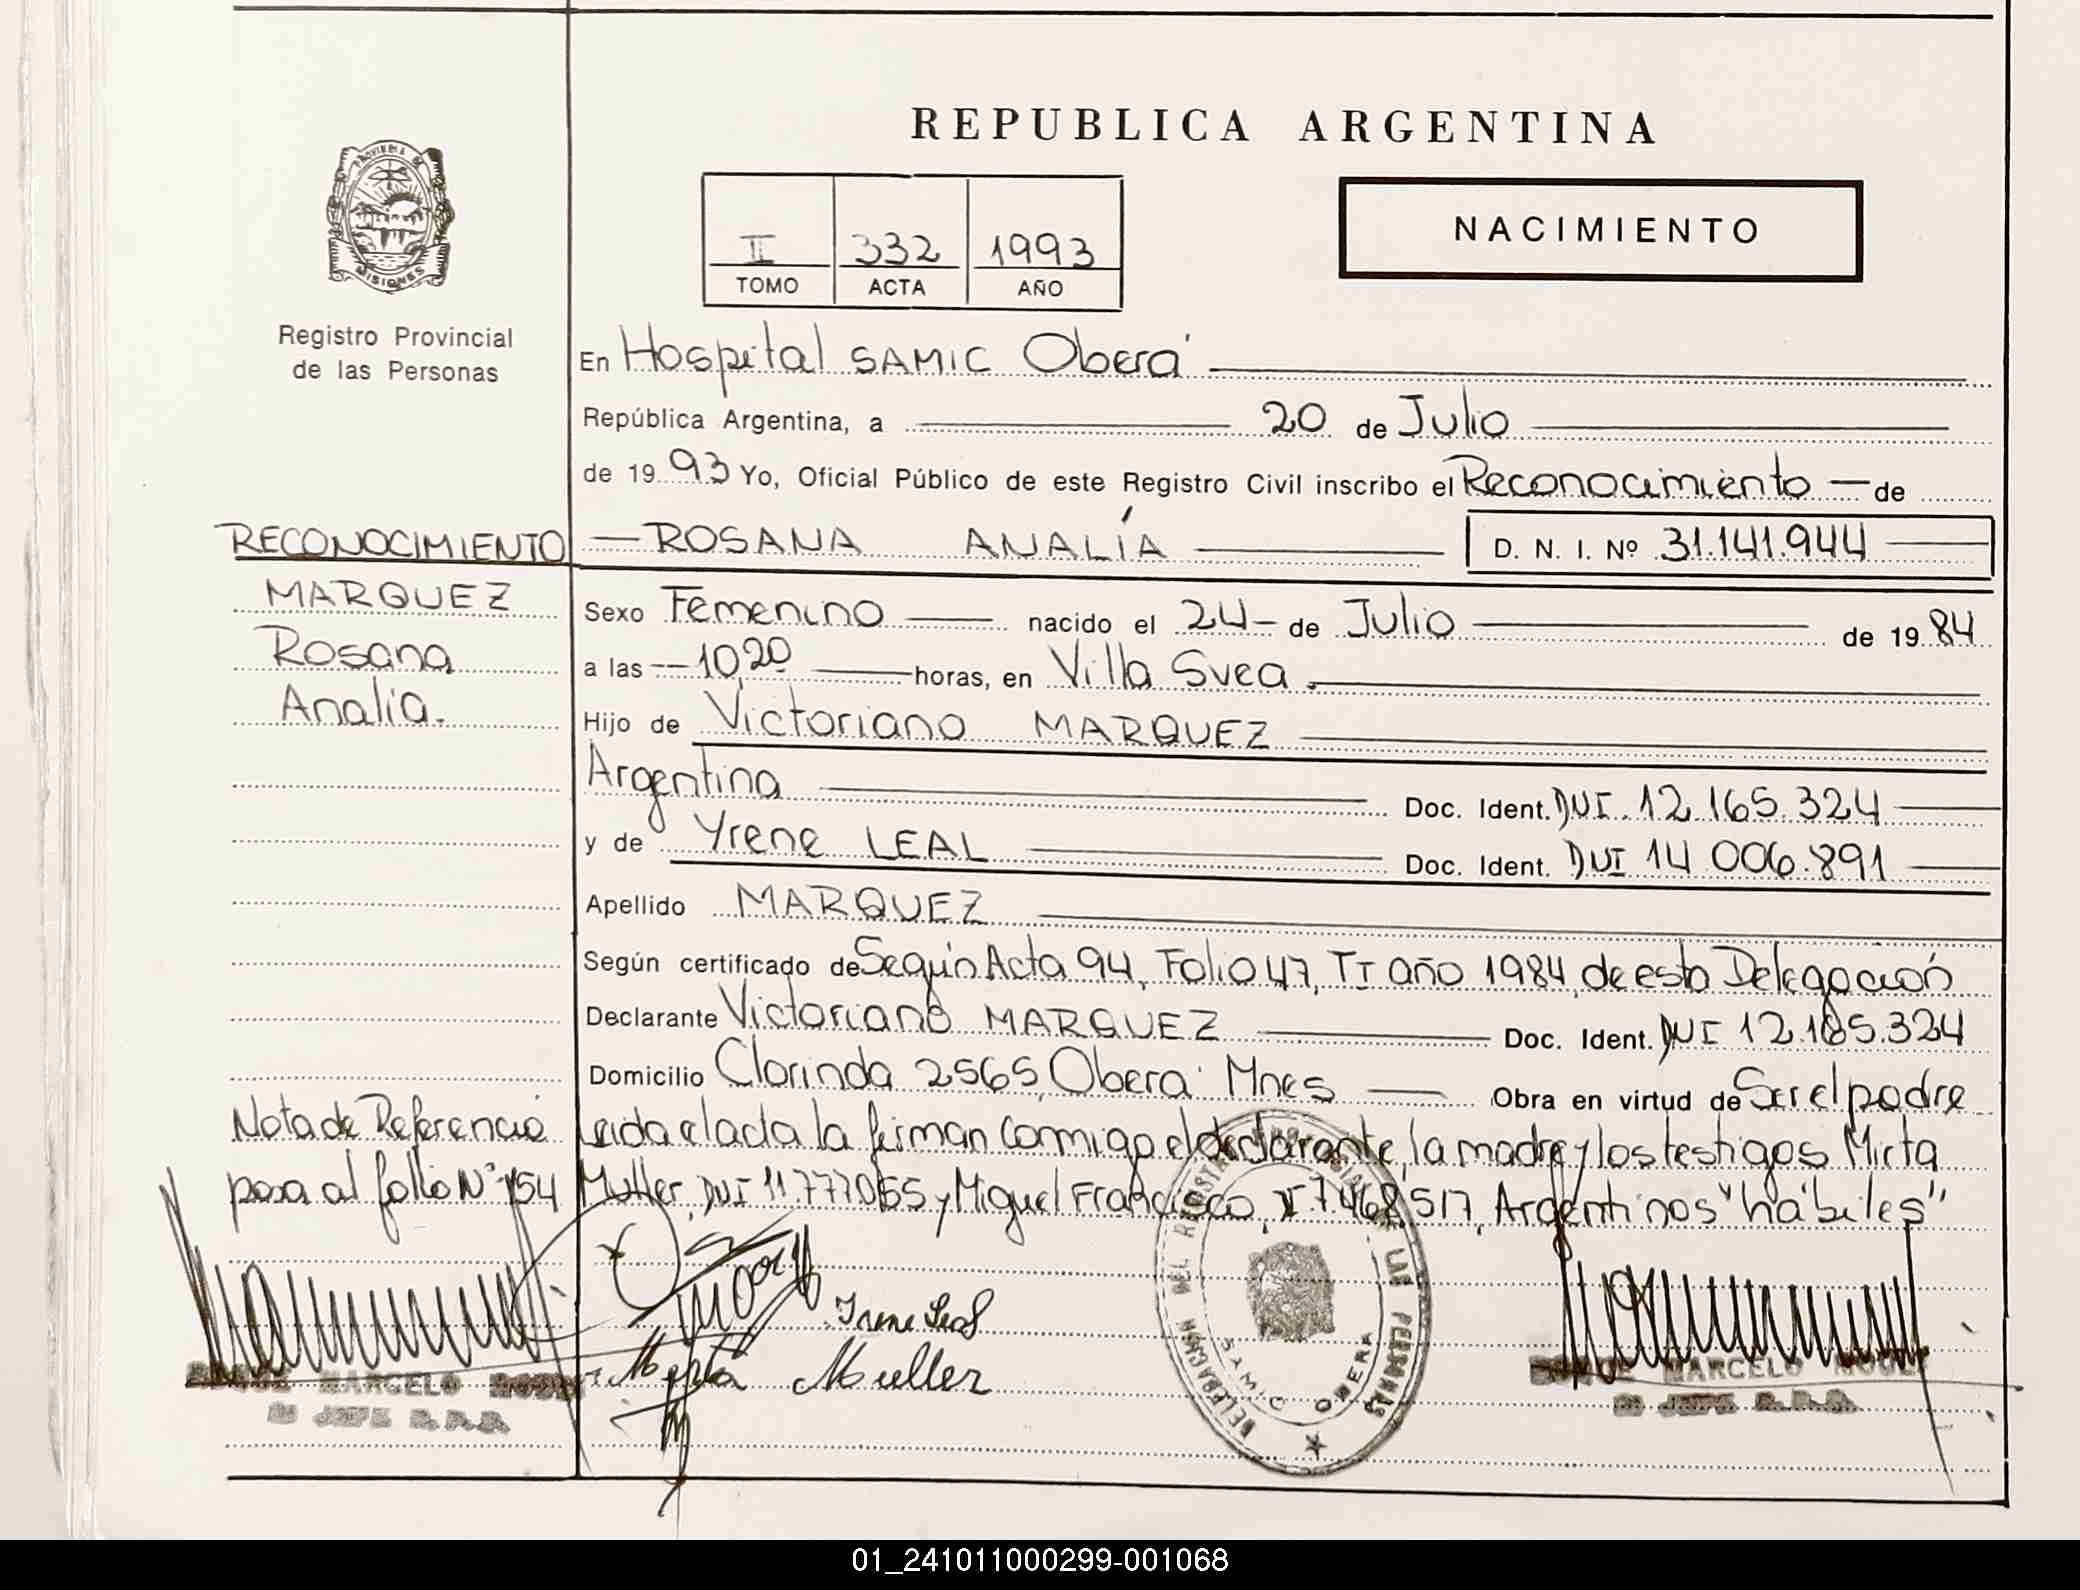 REPUBLICA ARGENTINA
NACIMIENTO
II 332 1993
TOMO ACTA AÑO
PROVINCIA DE
MISIONES
Registro Provincial
de las Personas
En Hospital SAMIC Oberá
República Argentina, a 20 de Julio
de 19 93 Yo, Oficial Público de este Registro Civil inscribo el Reconocimiento de
RECONOCIMIENTO
ROSANA ANALÍA D. N. I. Nº 31.141.944
MARQUEZ
Rosana
Analía.
Sexo Femenino nacido el 24 de Julio de 19 84
a las 10,20 horas, en Villa Svea.
Hijo de Victoriano MARQUEZ
Argentina Doc. Ident. DNI. 12.165.324
y de Yrene LEAL Doc. Ident. DNI 14 006.891
Apellido MARQUEZ
Según certificado de Según Acta 94, Folio 47, TI año 1984, de esta Delegación
Declarante Victoriano MARQUEZ Doc. Ident. DNI 12.165.324
Domicilio Clorinda 2565, Oberá Mnes Obra en virtud de Ser el padre
Nota de Referencia
pasa al folio Nº 154
Leida el acta la firman conmigo el declarante, la madre y los testigos Mirta
Muller, DNI 11.777.055 y Miguel Francisco, 7.468.517, Argentinos "hábiles"
Irene Leal
Mirta Mueller
DELEGACION DEL REGISTRO PROVINCIAL DE LAS PERSONAS
SAMIC OBERA
MARCELO
2o JEFE R.P.P.
MARCELO
2o JEFE R.P.P.
01_241011000299-001068